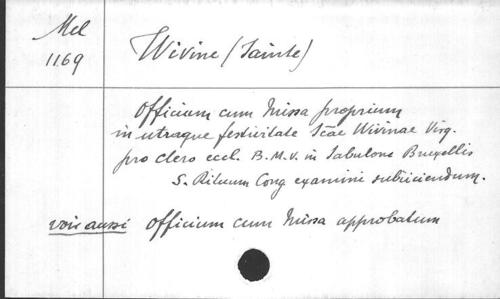 Mel
1169
Wivine (Sainte)
Officium cum Missa proprium
in utraque festivitate Scae Wivinae Virg.
pro clero eccl. B.M.V. in Sabulone Bruxellis
S. Rituum Cong examini subiiciendum.
voir aussi Officium cum Missa approbatum